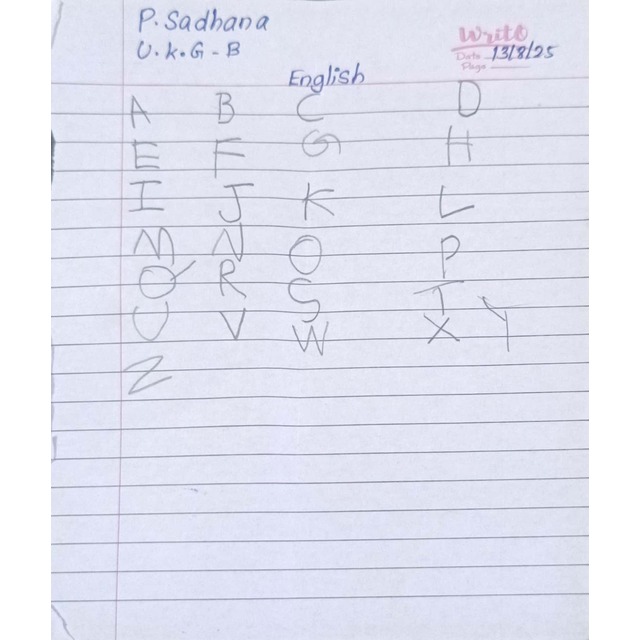 P. Sadhana
U.K.G - B
Write
Date 13/8/25
Page
English
A B C D
E F G H
I J K L
M N O P
Q R S T
U V W X Y
Z